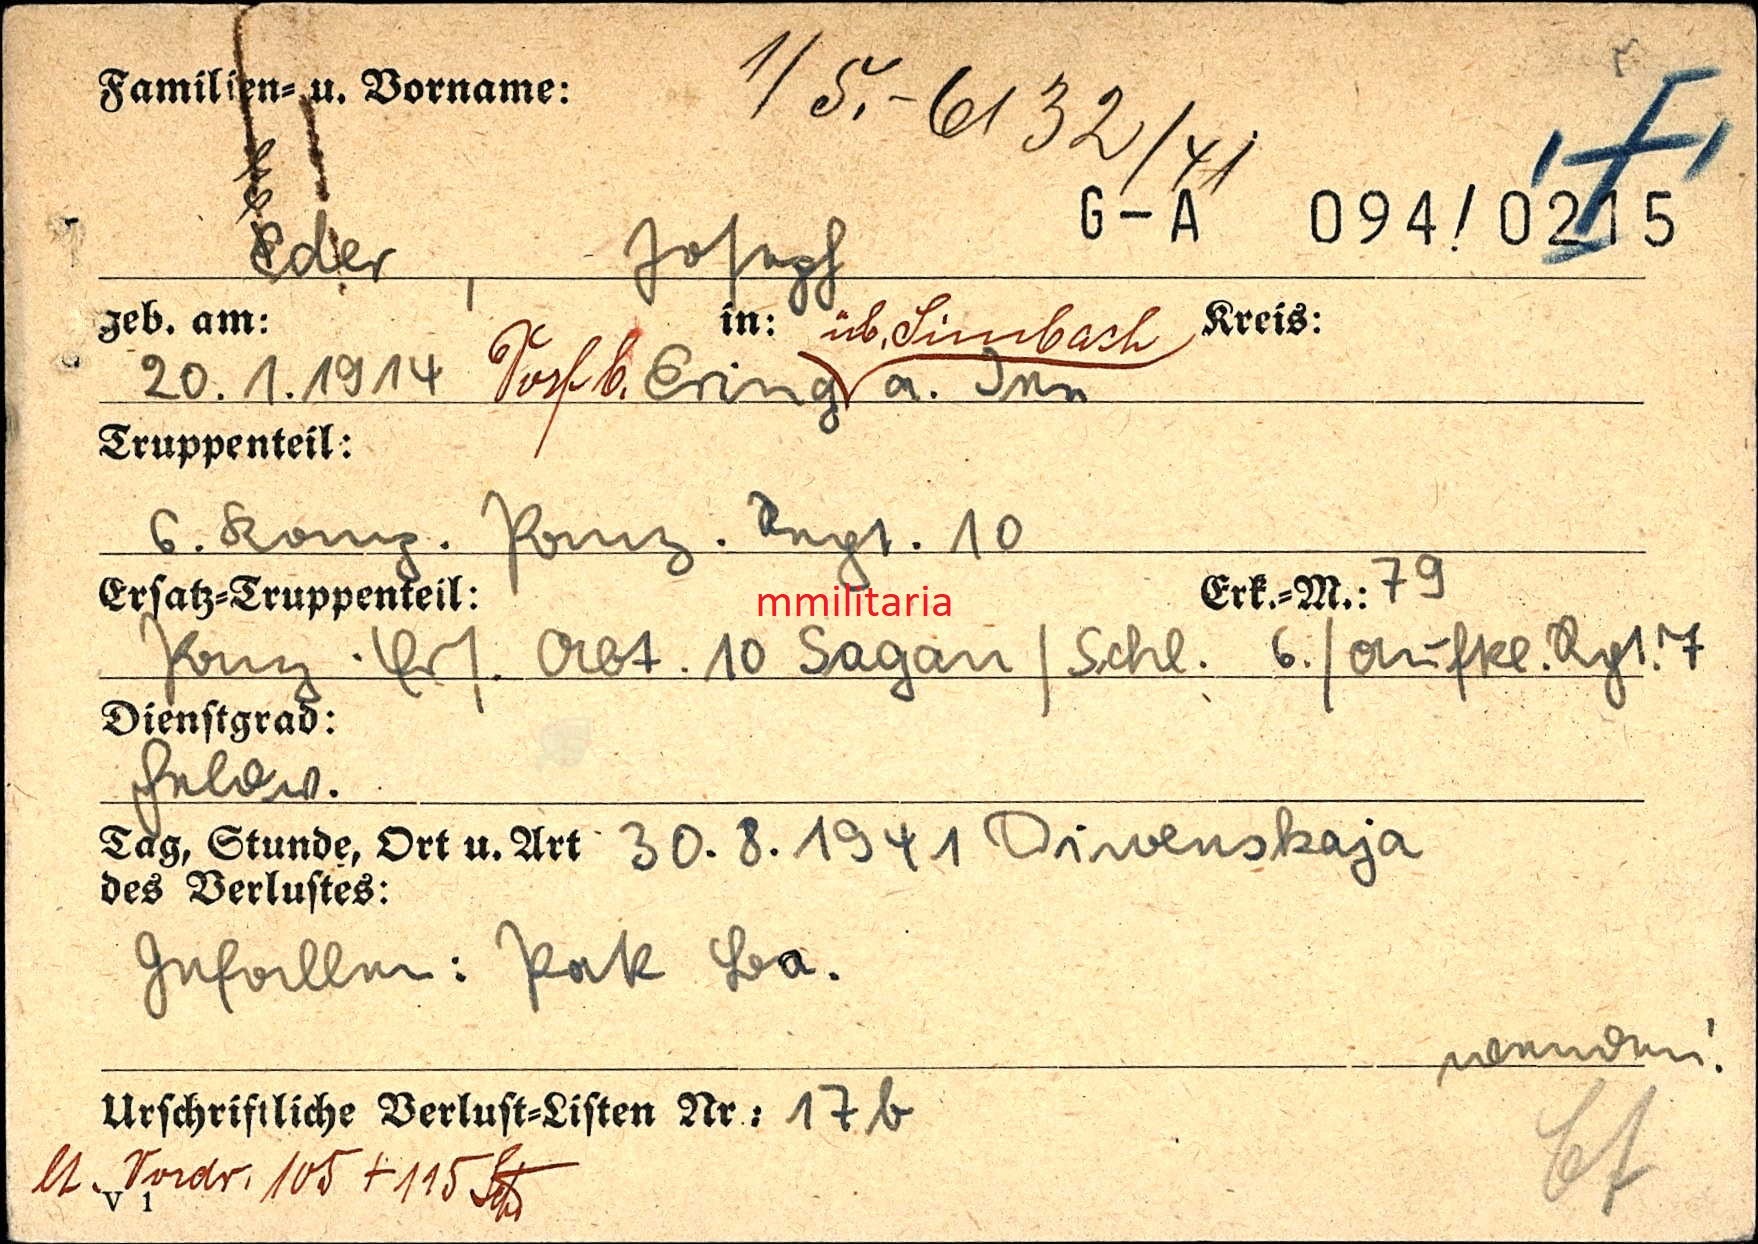 Familien- u. Vorname:
1/5.-6132/41
G-A 094/0215
Eder, Joseph
geb. am: in: üb. Simbach Kreis:
20.1.1914 b. Ering a. Inn
Truppenteil:
6. Komp. Panz. Regt. 10
Ersatz-Truppenteil: Erk.-M.: 79
mmilitaria
Panz. Ers. Abt. 10 Sagan / Schl. 6./Aufkl. Rgt. 7
Dienstgrad:
Feldw.
Tag, Stunde, Ort u. Art 30.8.1941 Diwenskaja
des Verlustes:
Gefallen: Pak
wenden!
Urschriftliche Verlust-Listen Nr.: 17b
lt. Vordr. 105 + 115
V 1